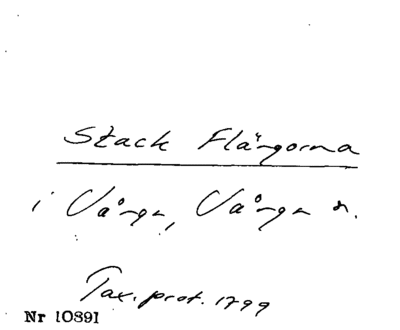 Stack Flängorna
i Vånga, Vånga sn.
Tax. prot. 1799
Nr 10891